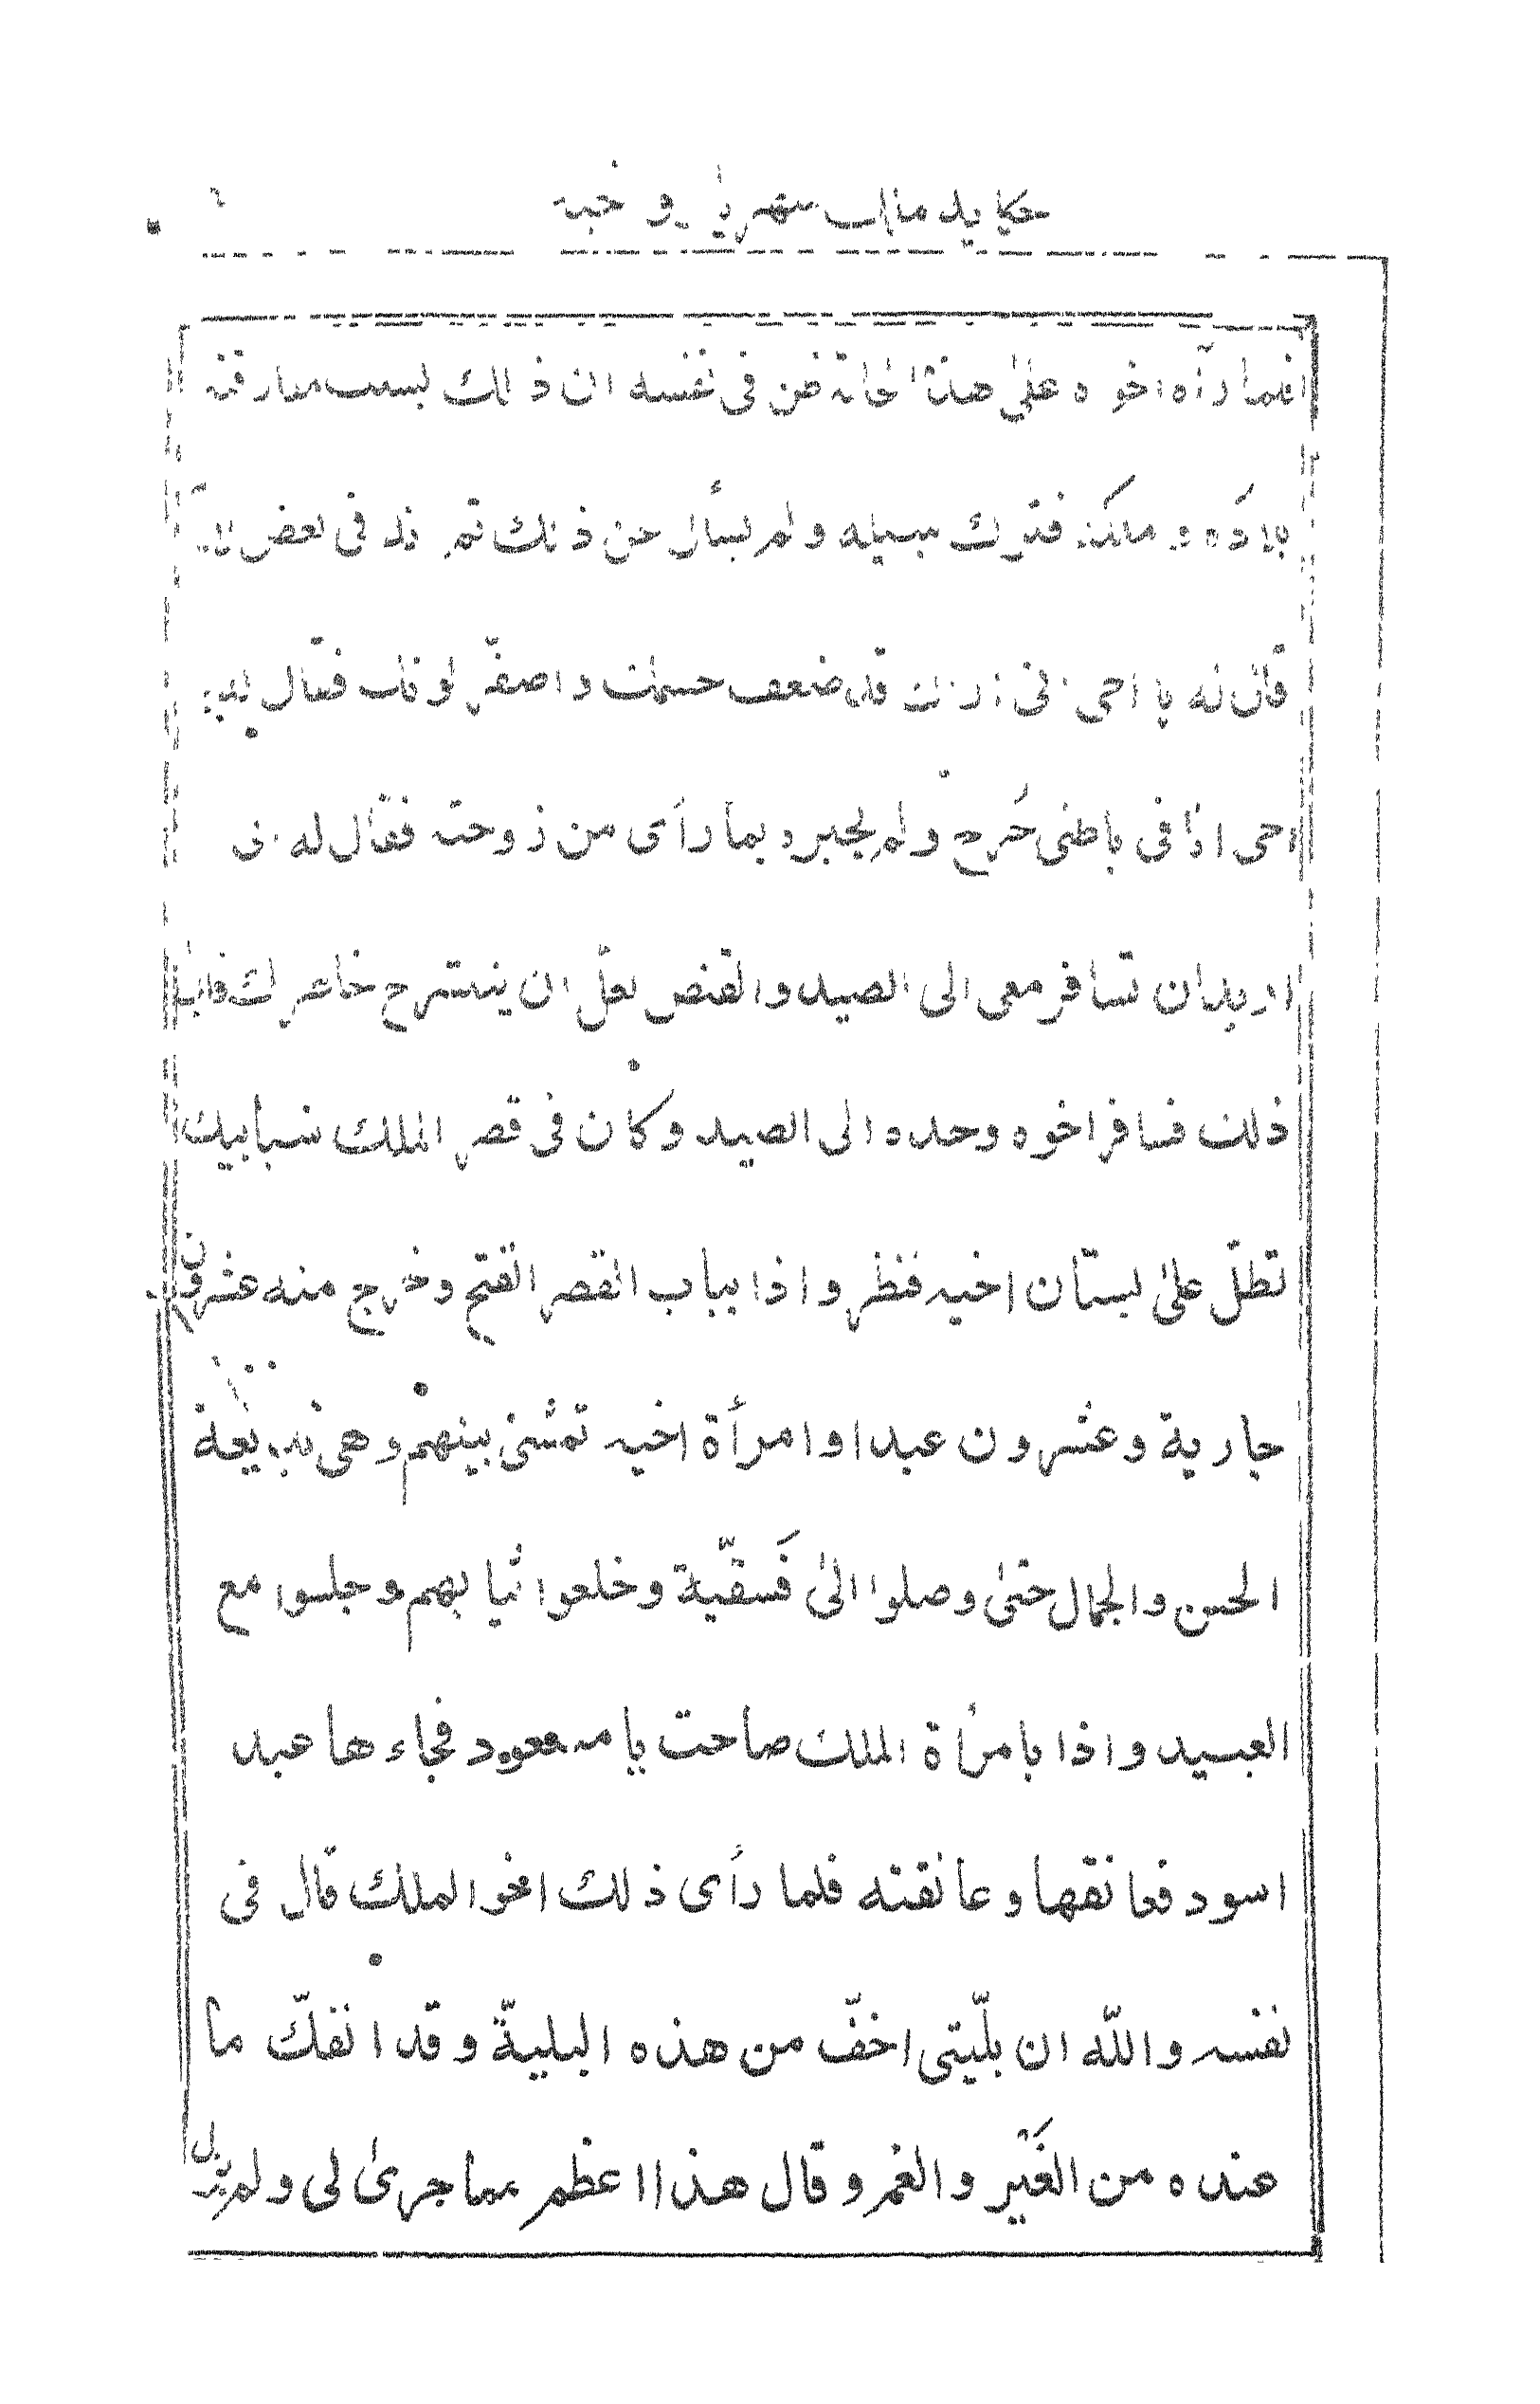 حكاية ملك شهريار و اخيه
فلما رآه اخوه على هذه الحالة ظن في نفسه ان ذلك بسبب مفارقته
بلاده و ملكه فترك سبيله و لم يسأل عن ذلك ثم في بعض الا
قال له يا اخي اني اراك قد ضعف جسمك و اصفر لونك فقال له يا
اخي انا في باطني جرح و لم يخبره بما رأى من زوجته فقال له اني
اريد ان تسافر معي الى الصيد و القنص لعلّ ان ينشرح خاطرك فابى
ذلك فسافر اخوه وحده الى الصيد و كان في قصر الملك شبابيك
تطلّ على بستان اخيه فنظر و اذا بباب القصر انفتح و خرج منه عشرون
جارية و عشرون عبدا و امرأة اخيه تمشى بينهم و هى بديعة
الحسن و الجمال حتى وصلوا الى فَسقيّة و خلعوا ثيابهم و جلسوا مع
العبيد و اذا بامرأة الملك صاحت يا مسعود فجاءها عبد
اسود فعانقها و عانقته فلما رأى ذلك اخو الملك قال فى
نفسه و اللّه ان بليّتى اخفّ من هذه البليّة و قد انفكّ ما
عنده من الغَيْر و الغم و قال هذا اعظم مما جرى لى و لم يزل